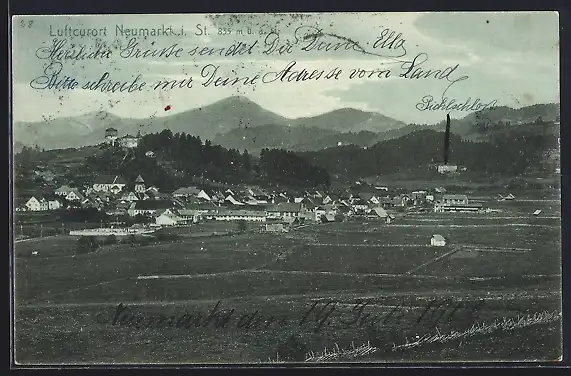 Luftcurort Neumarkt i. St. 835 m ü. d. M.
Herzliche Grüsse sendet Dir Deine Ella
Bitte schreibe mir Deine Adresse vom Land
Pichlschloss
Neumarkt den 19. Juli